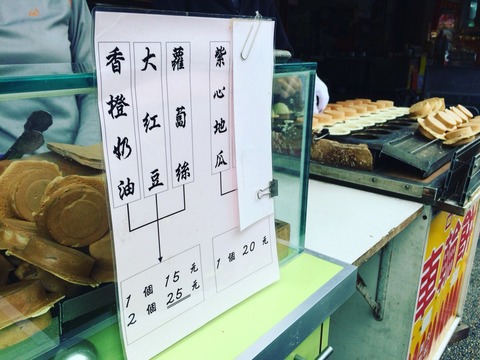 香橙奶油
大紅豆
蘿蔔絲
紫心地瓜
1個15元
2個25元
1個20元
車輪餅